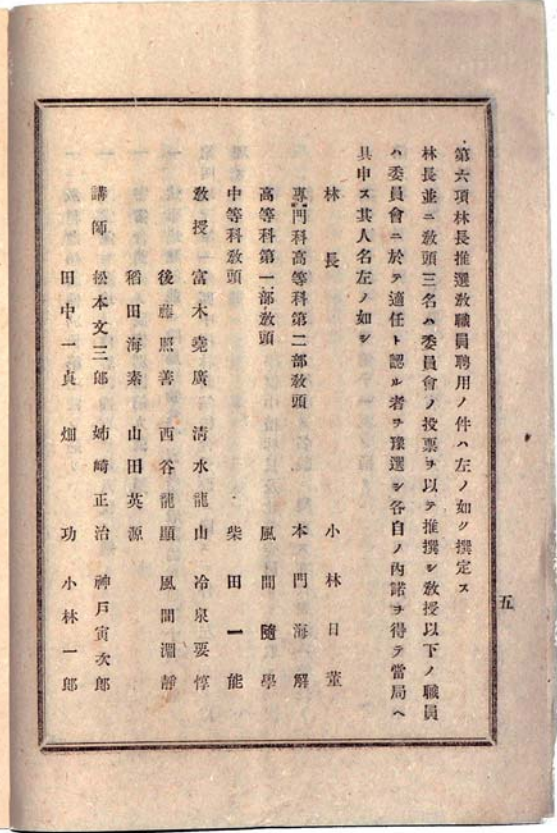 第六項林長推選敎職員聘用ノ件ハ左ノ如ク撰定ス
林長並ニ敎頭三名ハ委員會ノ投票ヲ以テ推撰シ敎授以下ノ職員
ハ委員會ニ於テ適任ト認ル者ヲ豫選シ各自ノ內諾ヲ得テ當局ヘ
具申ス其人名左ノ如シ
林長 小林日董
專門科高等科第二部敎頭 本門海解
高等科第一部敎頭 風間隨學
中等科敎頭 柴田一能
敎授 富木堯廣 淸水龍山 冷泉要惇
後藤照善 西谷龍顯 風間淵靜
稻田海素 山田英源
講師 松本文三郞 姉崎正治 神戶寅次郞
田中一貞 畑功 小林一郞
五